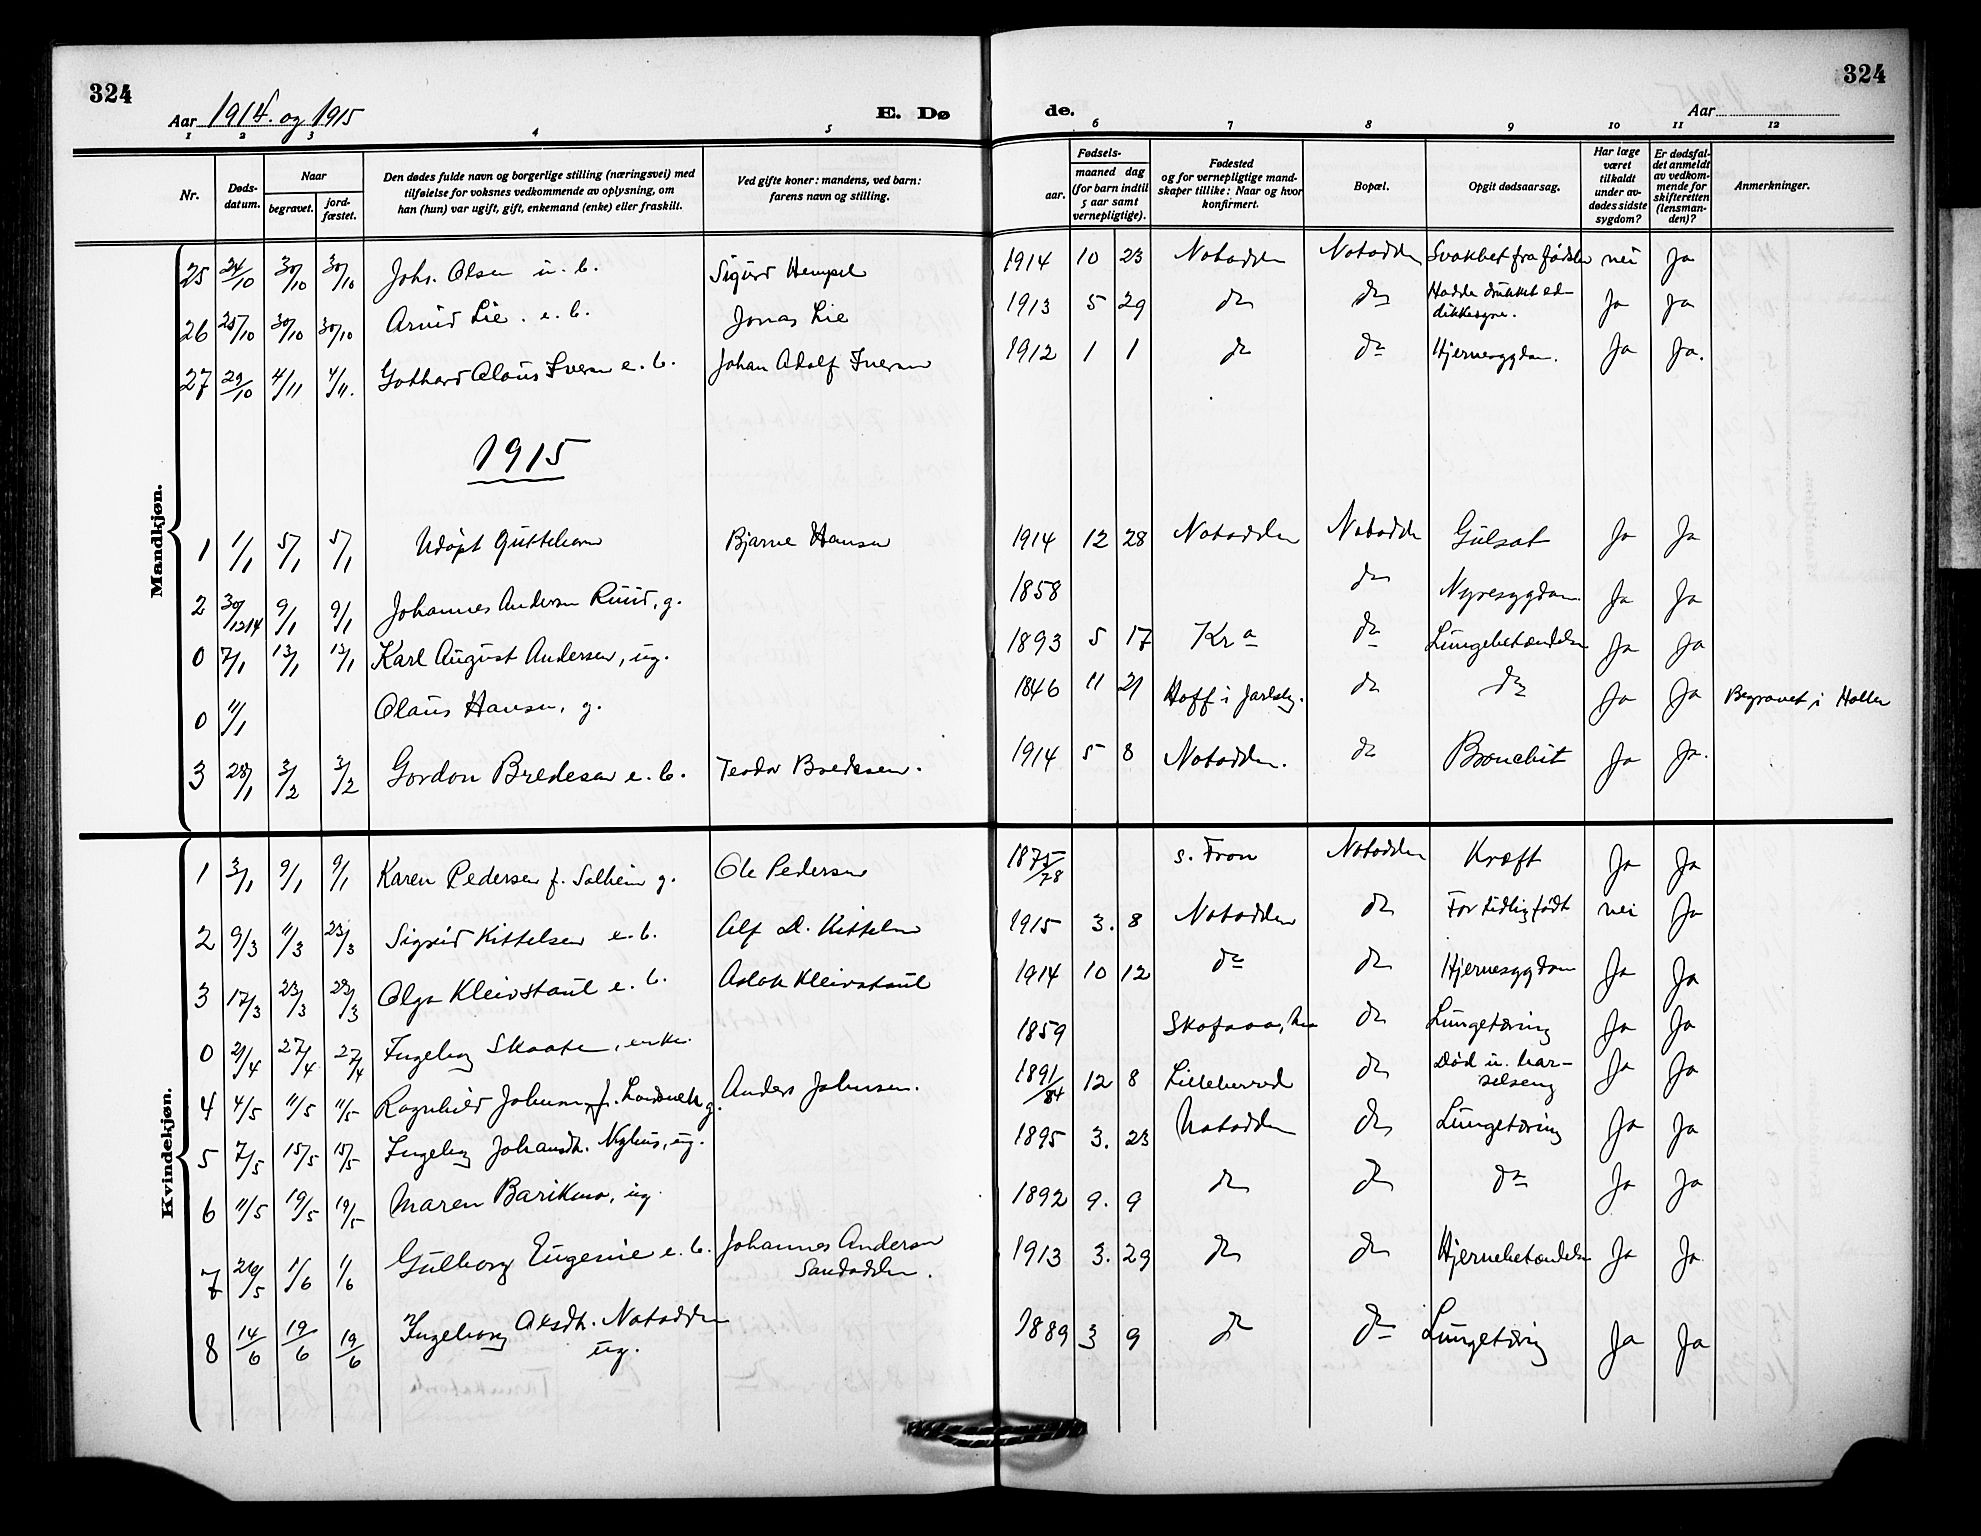 324
324
Aar 1914. og 1915
E. Dø
de.
Aar
1 2 3 4 5 6 7 8 9 10 11 12
Nr.
Døds-
datum.
Naar
begravet.
jord-
fæstet.
Den dødes fulde navn og borgerlige stilling (næringsvei) med
tilføielse for voksnes vedkommende av oplysning, om
han (hun) var ugift, gift, enkemand (enke) eller fraskilt.
Ved gifte koner: mandens, ved barn:
farens navn og stilling.
Fødsels-
aar.
maaned dag
(for barn indtil
5 aar samt
vernepligtige).
Fødested
og for vernepligtige mand-
skaper tillike: Naar og hvor
konfirmert.
Bopæl.
Opgit dødsaarsag.
Har læge
været
tilkaldt
under av-
dødes sidste
sygdom?
Er dødsfal-
det anmeldt
av vedkom-
mende for
skifteretten
(lensman-
den)?
Anmerkninger.
Mandkjøn.
25 24/10 30/10 30/10 Johs. Olsen u. b. Sigurd Hempel 1914 10 23 Notodden Notodden Svakhet fra fødslen nei Ja
26 25/10 30/10 30/10 Arvid Lie. e. b. Jonas Lie 1913 5 29 do do Hadde drukket ed-
dikksyre. Ja Ja
27 29/10 4/11 4/11. Gothard Olaus Iversen e. b. Johan Adolf Iversen 1912 1 1 do do Hjernesygdom. Ja Ja.
1915
1 1/1 5/1 5/1 Udøpt guttebarn Bjarne Hansen 1914 12 28 Notodden Notodden Gulsot Ja Ja
2 30/12 14 9/1 9/1 Johannes Andersen Ruud, g. 1858 do Nyresygdom. Ja Ja
0 7/1 13/1 13/1 Karl August Andersen, ug. 1893 5 17 Kra do Lungebetændelse Ja Ja
0 11/1 Olaus Hansen, g. 1846 11 21 Hoff i Jarlsbg. do do Ja Ja Begravet i Holla
3 28/1 3/2 3/2 Gordon Bredesen e. b. Teodor Bredesen. 1914 5 8 Notodden. do Bronchit Ja Ja.
Kvindekjøn.
1 3/1 9/1 9/1 Karen Pedersen f. Solheim g. Ole Pedersen 1875/78 s. Fron Notodden Kræft Ja Ja
2 9/3 11/3 23/3 Sigrid Kittelsen e. b. Alf D. Kittelsen 1915 3. 8 Notodden do For tidlig født nei Ja
3 17/3 23/3 23/3 Olga Kleivstaul e. b. Aslak Kleivstaul 1914 10 12 do do Hjernesygdom Ja Ja
0 21/4 27/4 27/4 Ingeborg Skaate, enke. 1859 do Lungetæring Ja Ja
4 4/5 11/5 11/5 Ragnhild Johnsen, f. g. Anders Johnsen. 1891/84 12 8 Lilleherred do Død u. bar-
selseng Ja Ja
5 7/5 15/5 15/5 Ingeborg Johansdt. Nyhus, ug. 1895 3. 23 Notodden do Lungetæring Ja Ja
6 11/5 19/5 19/5 Maren Barikmo, ug. 1892 9. 9 do do do Ja Ja
7 26/5 1/6 1/6 Gulborg Eugenie e. b. Johannes Andersen
Sandodden. 1913 3. 29 do do Hjernebetændelse Ja Ja
8 14/6 19/6 19/6 Ingeborg Olsdtr. Notodden
ug. 1889 3 9 do do Lungetæring Ja Ja